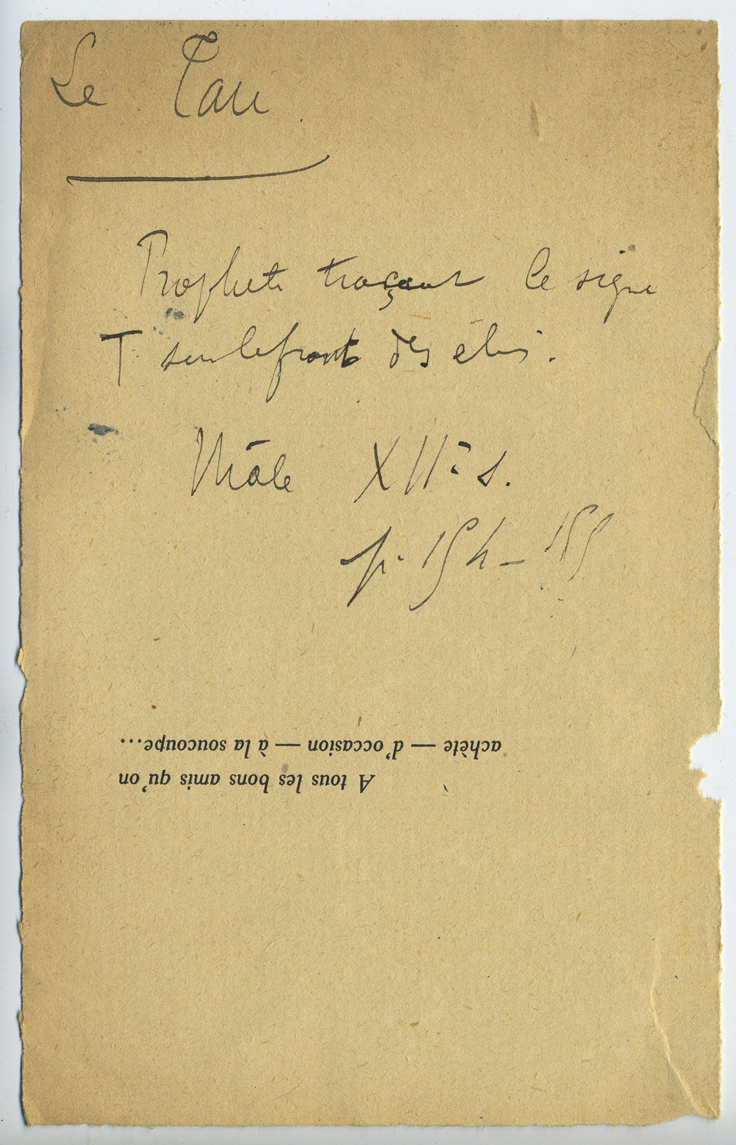 Le Tau
Prophète traçant le signe
T sur le front des élus.
Mâle XIIe s.
p. 154-155
A tous les bons amis qu'on
achète — d'occasion — à la soucoupe...